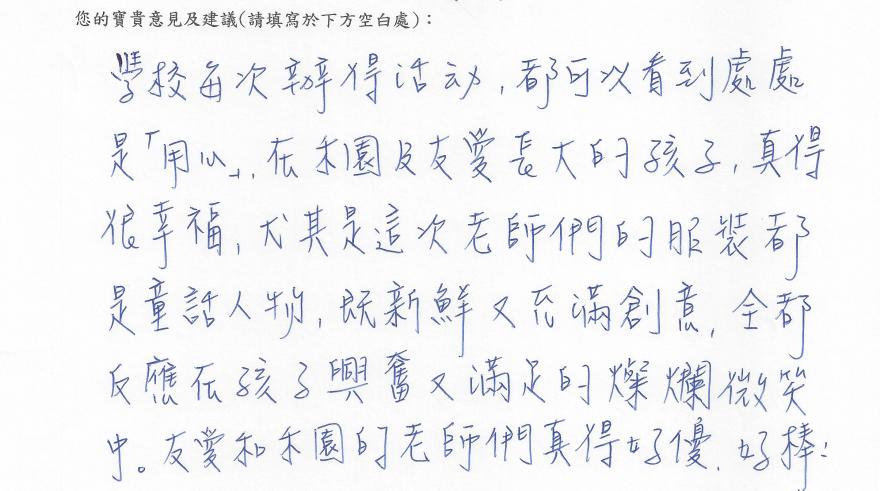 您的寶貴意見及建議(請填寫於下方空白處)：
學校每次辦得活动，都可以看到處處
是「用心」，在禾園及友愛長大的孩子，真得
很幸福，尤其是這次老師們的服裝都
是童話人物，既新鮮又充滿創意，全都
反應在孩子興奮又滿足的燦爛微笑
中。友愛和禾園的老師們真得好優、好棒！